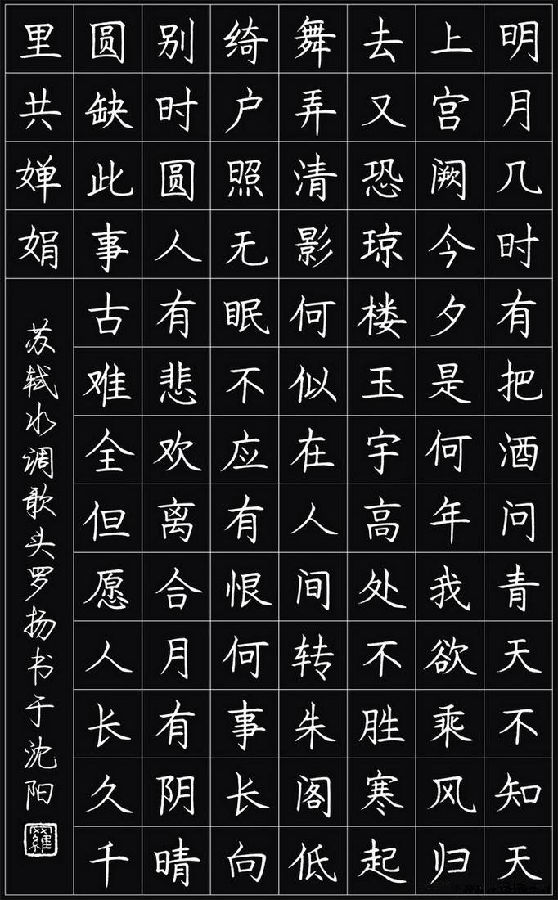 明月几时有把酒问青天不知天
上宫阙今夕是何年我欲乘风归
去又恐琼楼玉宇高处不胜寒起
舞弄清影何似在人间转朱阁低
绮户照无眠不应有恨何事长向
别时圆人有悲欢离合月有阴晴
圆缺此事古难全但愿人长久千
里共婵娟
苏轼水调歌头罗扬书于沈阳